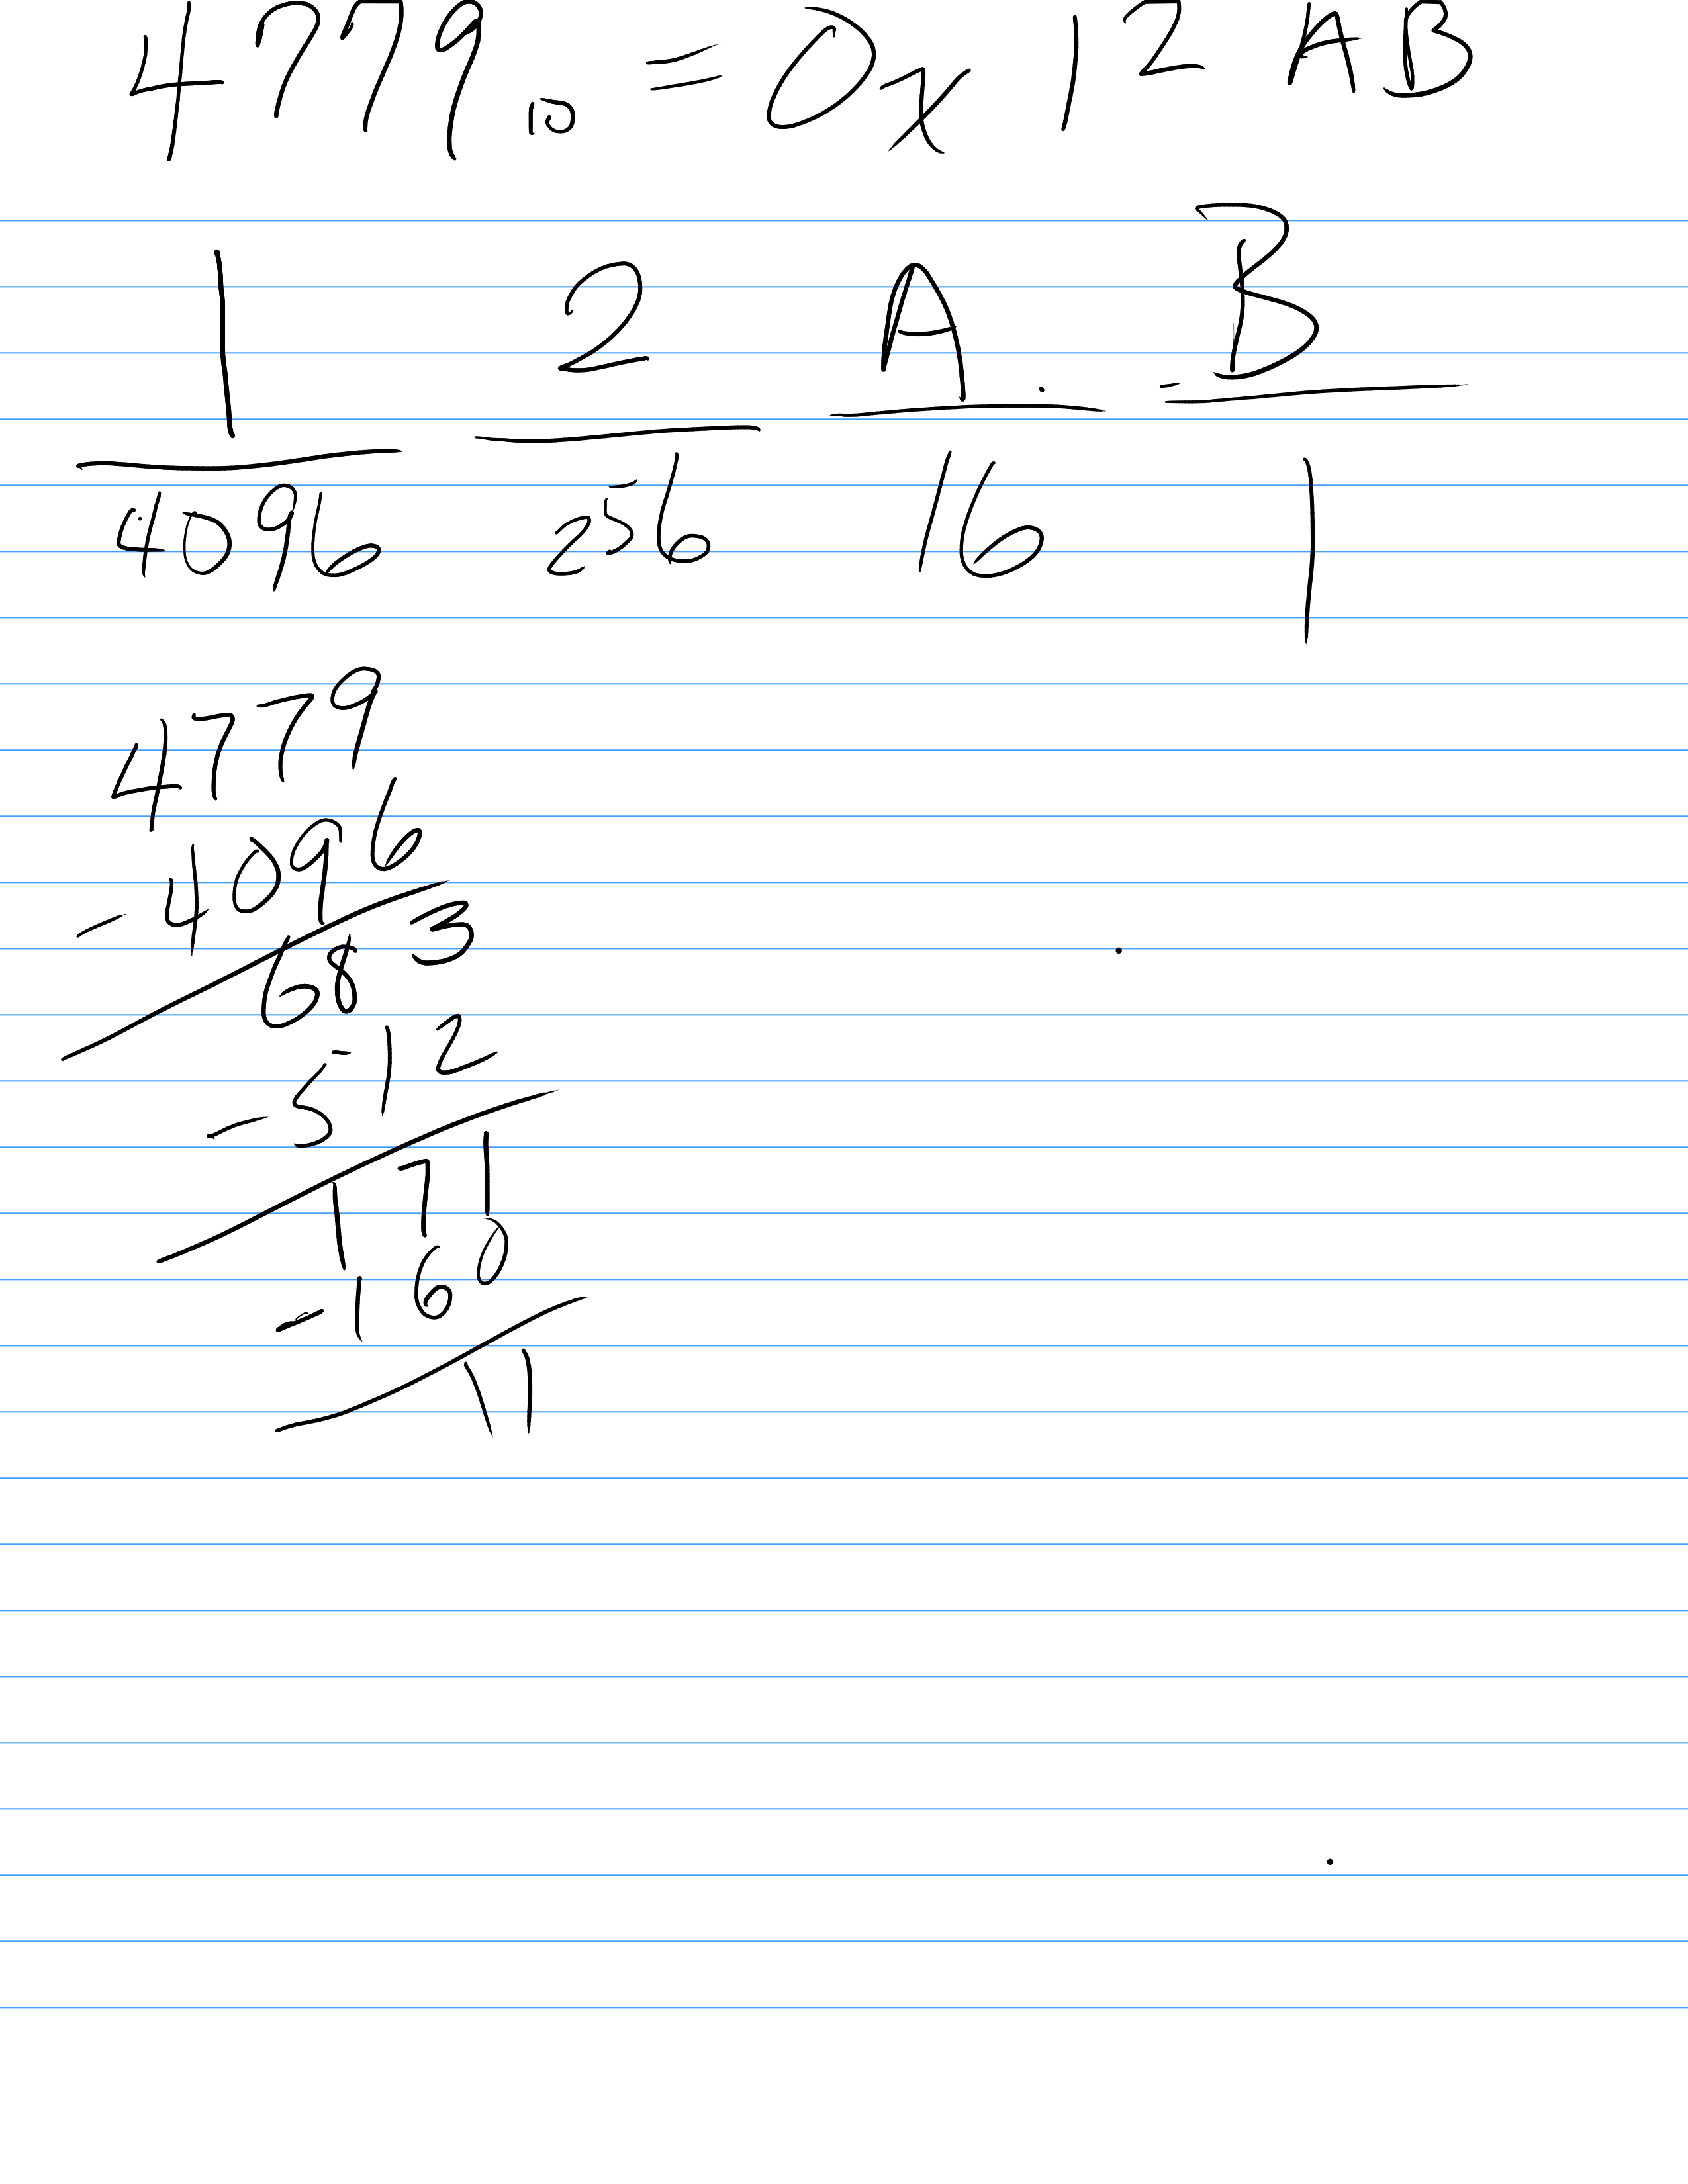 4779₁₀ = 0x 12AB
1 2 A B
4096 256 16 1
4779
- 4096
683
- 512
171
- 160
11